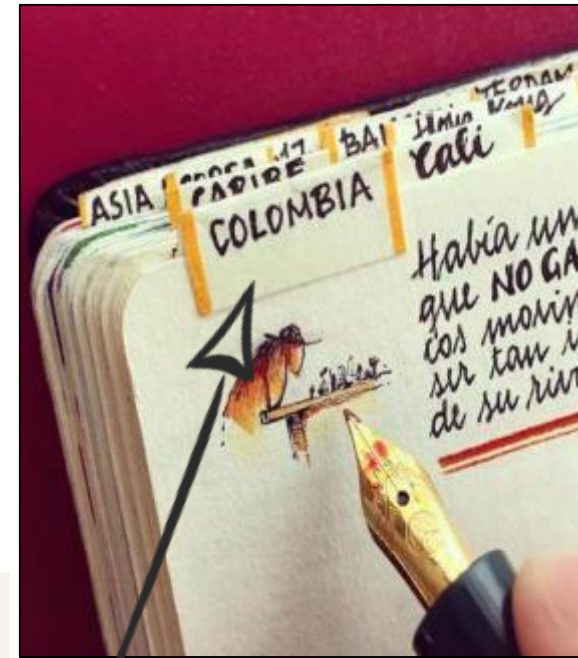 ASIA
CARIBE
BAI
COLOMBIA
Cali
Había un
que NO GA
cos movim
ser tan i
de su riv